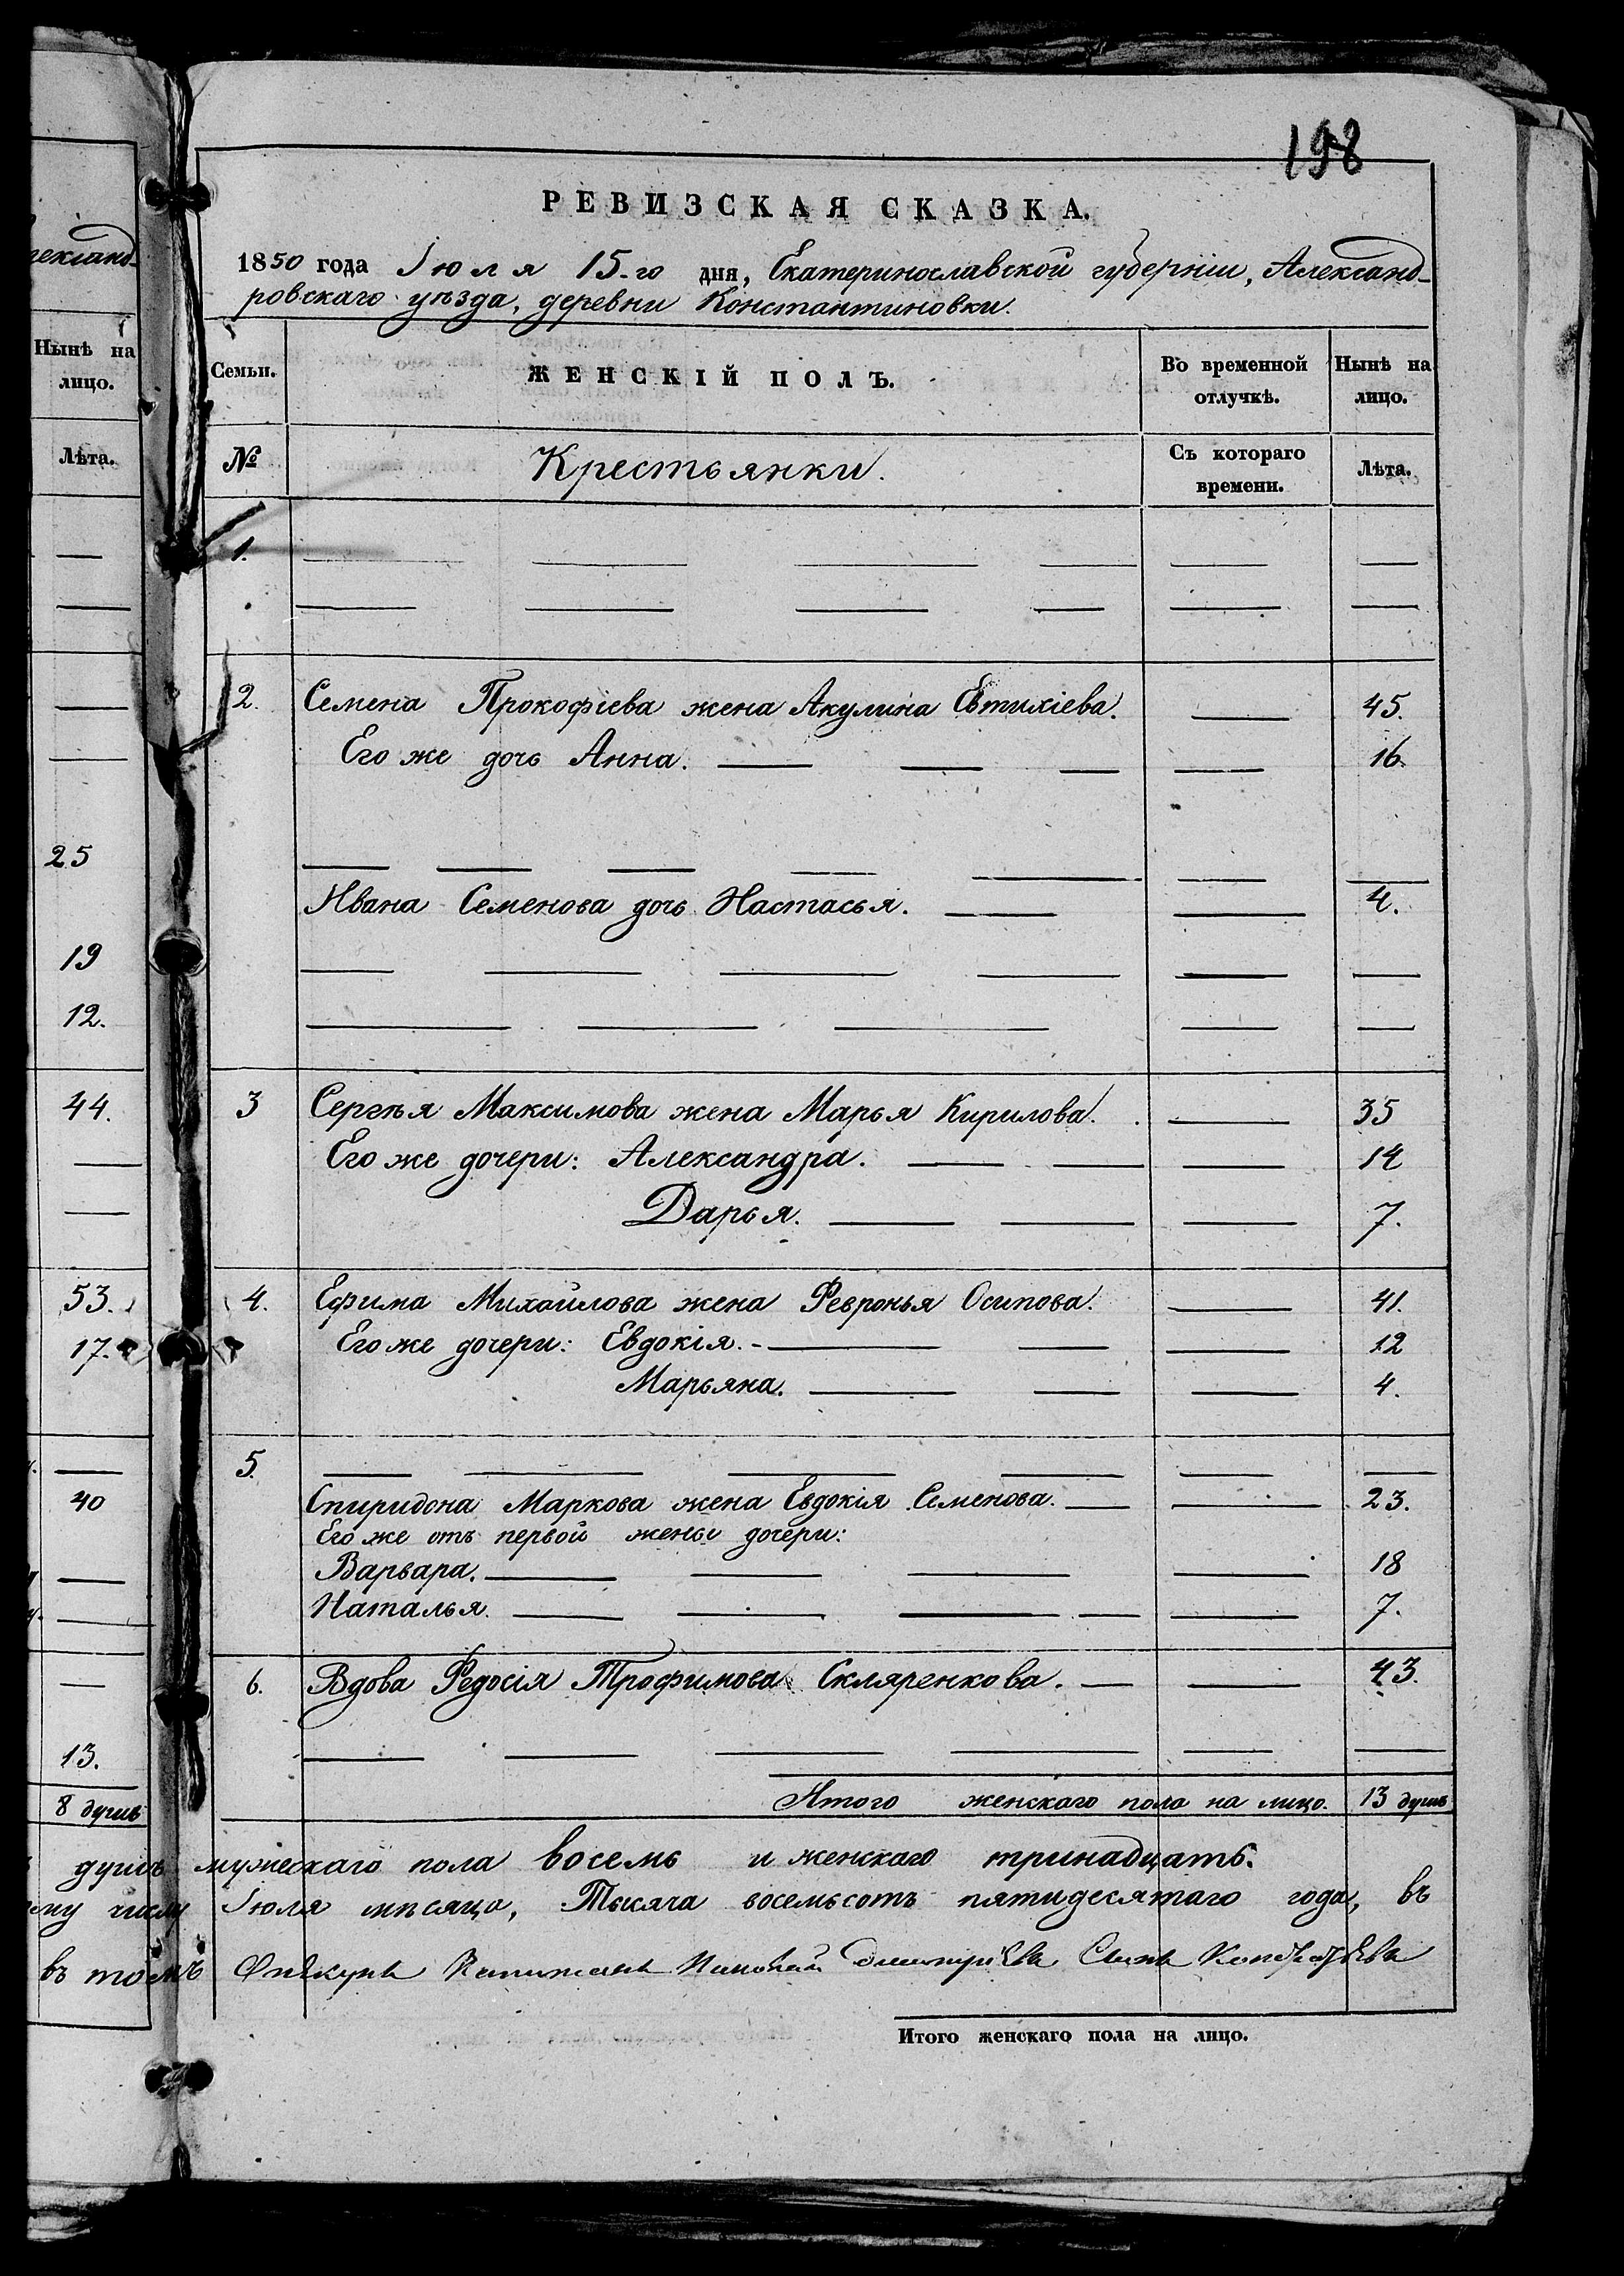 198
РЕВИЗСКАЯ СКАЗКА.
1850 года Іюля 15-го дня, Екатеринославской губерніи, Александ-
ровскаго уѣзда, деревни Константиновки.
Нынѣ на
лицо.
Лѣта.
Семьи.
ЖЕНСКІЙ ПОЛЪ.
Во временной
отлучкѣ.
Нынѣ на
лицо.
№
Крестьянки.
Съ котораго
времени.
Лѣта.
1.
2. Семена Прокофіева жена Акулина Евтихіева. — 45.
Его же дочь Анна. — — — — 16.
25
Ивана Семенова дочь Настасья. — — 4.
19
12.
44. 3 Сергѣя Максимова жена Марья Кирилова. — 35
Его же дочери: Александра. — — — 14
Дарья. — — — 7.
53. 4. Ефима Михайлова жена Февронья Осипова. — 41.
17. Его же дочери: Евдокія. — — — 12
Марьяна. — — — 4.
5.
40 Спиридона Маркова жена Евдокія Семенова. — — 23.
Его же отъ первой жены дочери:
Варвара. — — — — 18
Наталья. — — — — — 7.
6. Вдова Федосія Трофимова Скляренкова. — — 43.
13.
8 душъ Итого женскаго пола на лицо. 13 душъ
душъ мужескаго пола восемь и женскаго тринадцать.
числу Іюля мѣсяца, Тысяча восемьсотъ пятидесятаго года, въ
въ томъ Опѣкунъ Капитанъ Николай Дмитріевъ Сынъ
Итого женскаго пола на лицо.